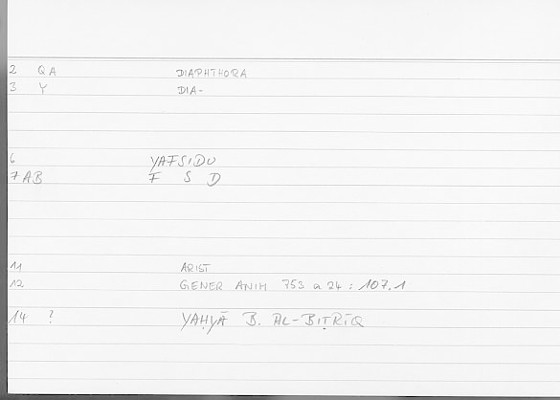 2 QA DIAPHTHORA
3 Y DIA-
6 YAFSIDU
7 AB F S D
11 ARIST
12 GENER ANIM 753 a 24 : 107.1
14 ? YAḤYĀ B. AL-BIṬRĪQ